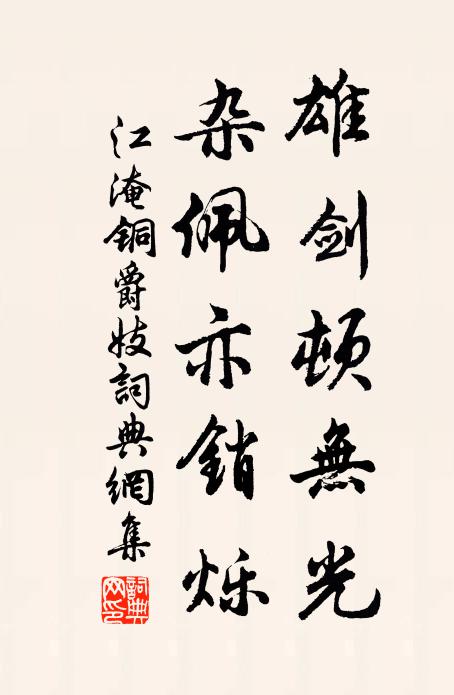 雄剑顿無光
杂佩亦銷烁
江淹銅爵妓詞典網集
詞典网印